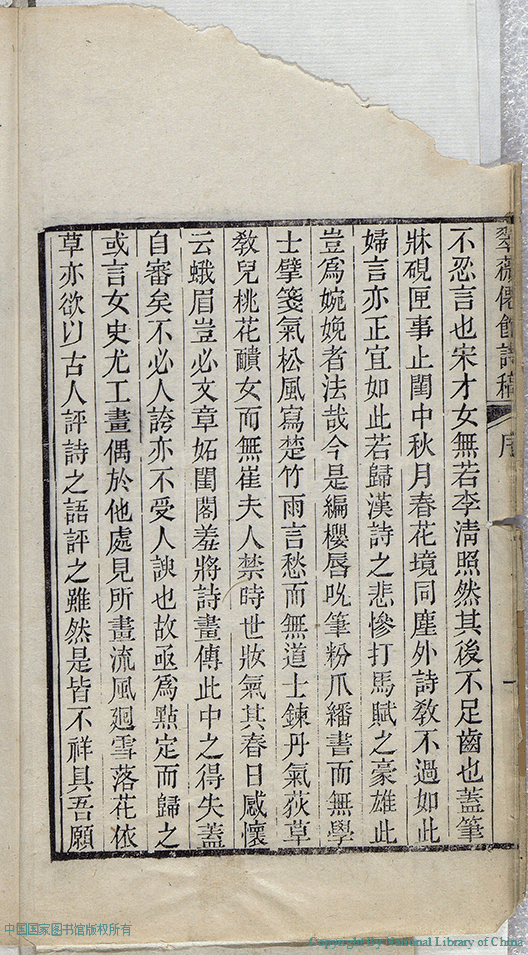 翠薇僊館詩稿 序 一
不忍言也宋才女無若李清照然其後不足齒也蓋筆
牀硯匣事止閨中秋月春花境同塵外詩敎不過如此
婦言亦正宜如此若歸漢詩之悲慘打馬賦之豪雄此
豈爲婉娩者法哉今是編櫻唇吮筆粉爪繙書而無學
士擘箋氣松風寫楚竹雨言愁而無道士鍊丹氣荻草
敎兒桃花靧女而無崔夫人禁時世妝氣其春日感懷
云蛾眉豈必文章妬閨閣羞將詩畫傳此中之得失蓋
自審矣不必人誇亦不受人諛也故亟爲點定而歸之
或言女史尤工畫偶於他處見所畫流風廻雪落花依
草亦欲以古人評詩之語評之雖然是皆不祥具吾願
中国国家图书馆版权所有
Copyright By National Library of China